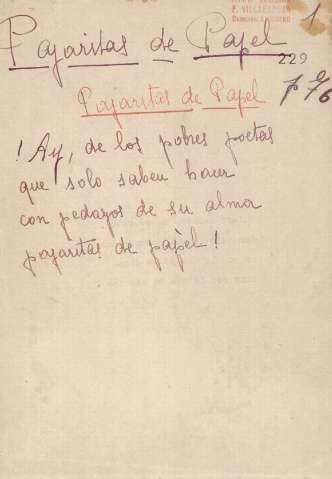 E. VILLAESPESA
1
Pajaritas de Papel
229
Pajaritas de Papel
¡Ay, de los pobres poetas
que solo saben hacer
con pedazos de su alma
pajaritas de papel!